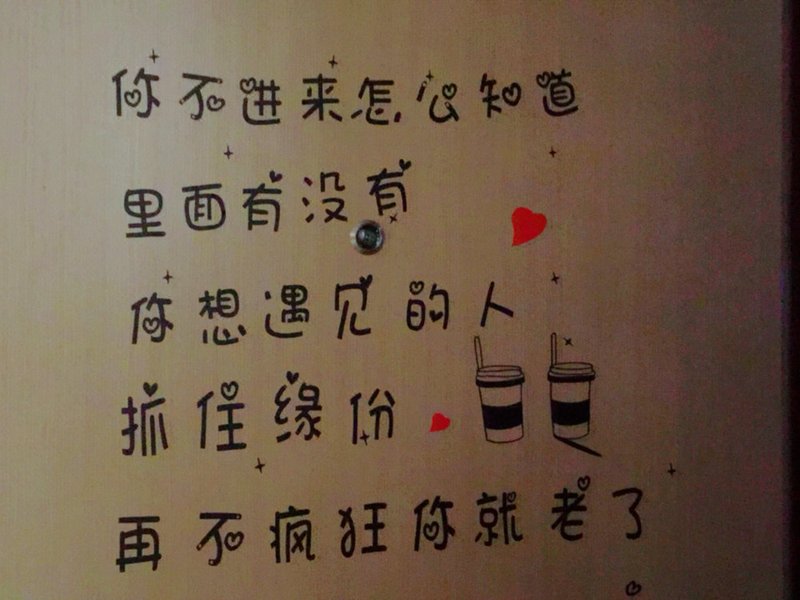 你不进来怎么知道
里面有没有
你想遇见的人
抓住缘份
再不疯狂你就老了